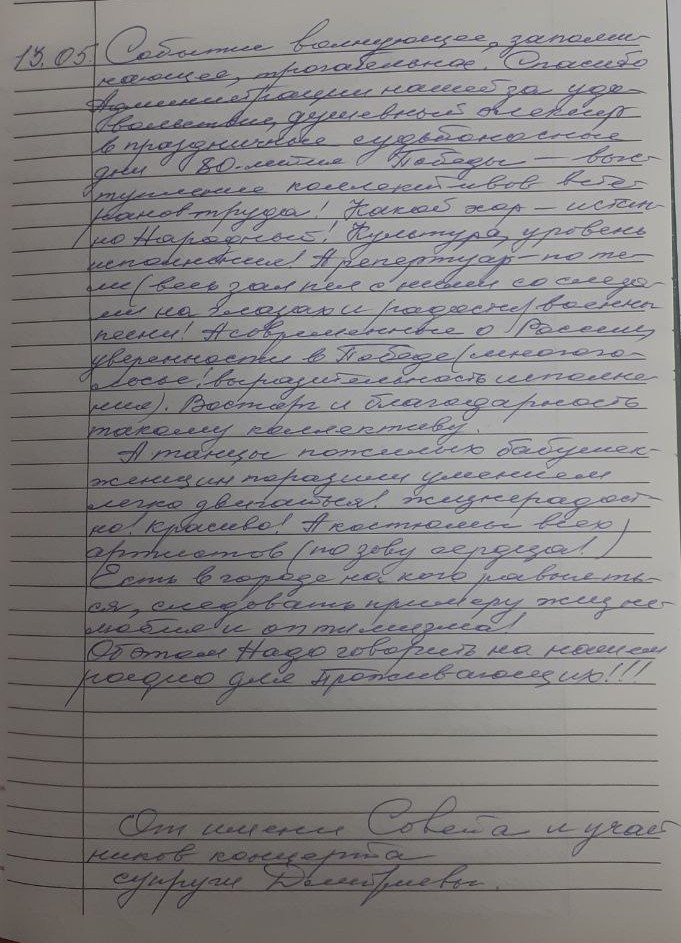 13.05. Событие волнующее, запоми-
нающее, трогательное. Спасибо
Администрации нашей за удо-
вольствие, душевный
в праздничные судьбоносные
дни 80-летия Победы – выс-
тупление коллективов вете-
ранов труда! Какой хор – истин-
но Народный! Культура, уровень
исполнения! А репертуар – по те-
ме (весь зал пел с ними со слеза-
ми на глазах и радости) военны
песни! А современные о России,
уверенности в Победе (многого-
лосье! выразительность исполне-
ния). Восторг и благодарность
такому коллективу.
А танцы пожилых бабушек-
женщин поразили умением
легко двигаться! Жизнерадост-
но! Красиво! А костюмы всех
артистов (по зову сердца!)
Есть в городе на кого равнять-
ся, следовать примеру жизне-
любия и оптимизма!
Об этом Надо говорить на нашем
радио для Проживающих!!!
От имени Совета и учас-
тников концерта
супруги Дмитриевы.